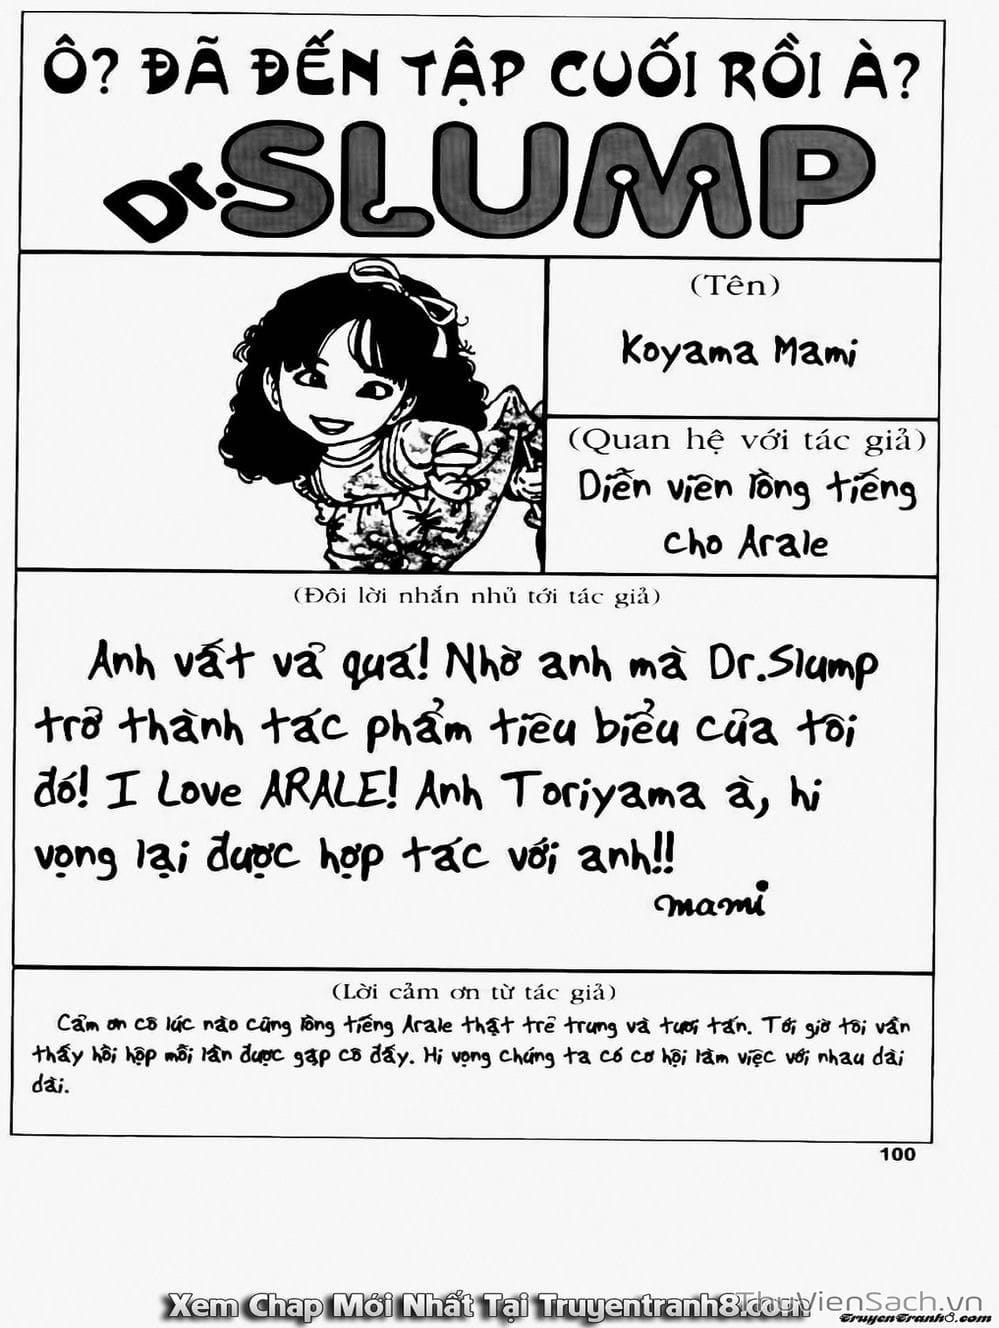 Ô? ĐÃ ĐẾN TẬP CUỐI RỒI À?
Dr. SLUMP
(Tên)
Koyama Mami
(Quan hệ với tác giả)
Diễn viên lồng tiếng
cho Arale
(Đôi lời nhắn nhủ tới tác giả)
Anh vất vả quá! Nhờ anh mà Dr.Slump
trở thành tác phẩm tiêu biểu của tôi
đó! I Love ARALE! Anh Toriyama à, hi
vọng lại được hợp tác với anh!!
mami
(Lời cảm ơn từ tác giả)
Cảm ơn cô lúc nào cũng lồng tiếng Arale thật trẻ trung và tươi tắn. Tới giờ tôi vẫn
thấy hồi hộp mỗi lần được gặp cô đấy. Hi vọng chúng ta có cơ hội làm việc với nhau dài
dài.
100
Xem Chap Mới Nhất Tại Truyentranh8.com
ThuVienSach.vn
TruyenTranh8.com